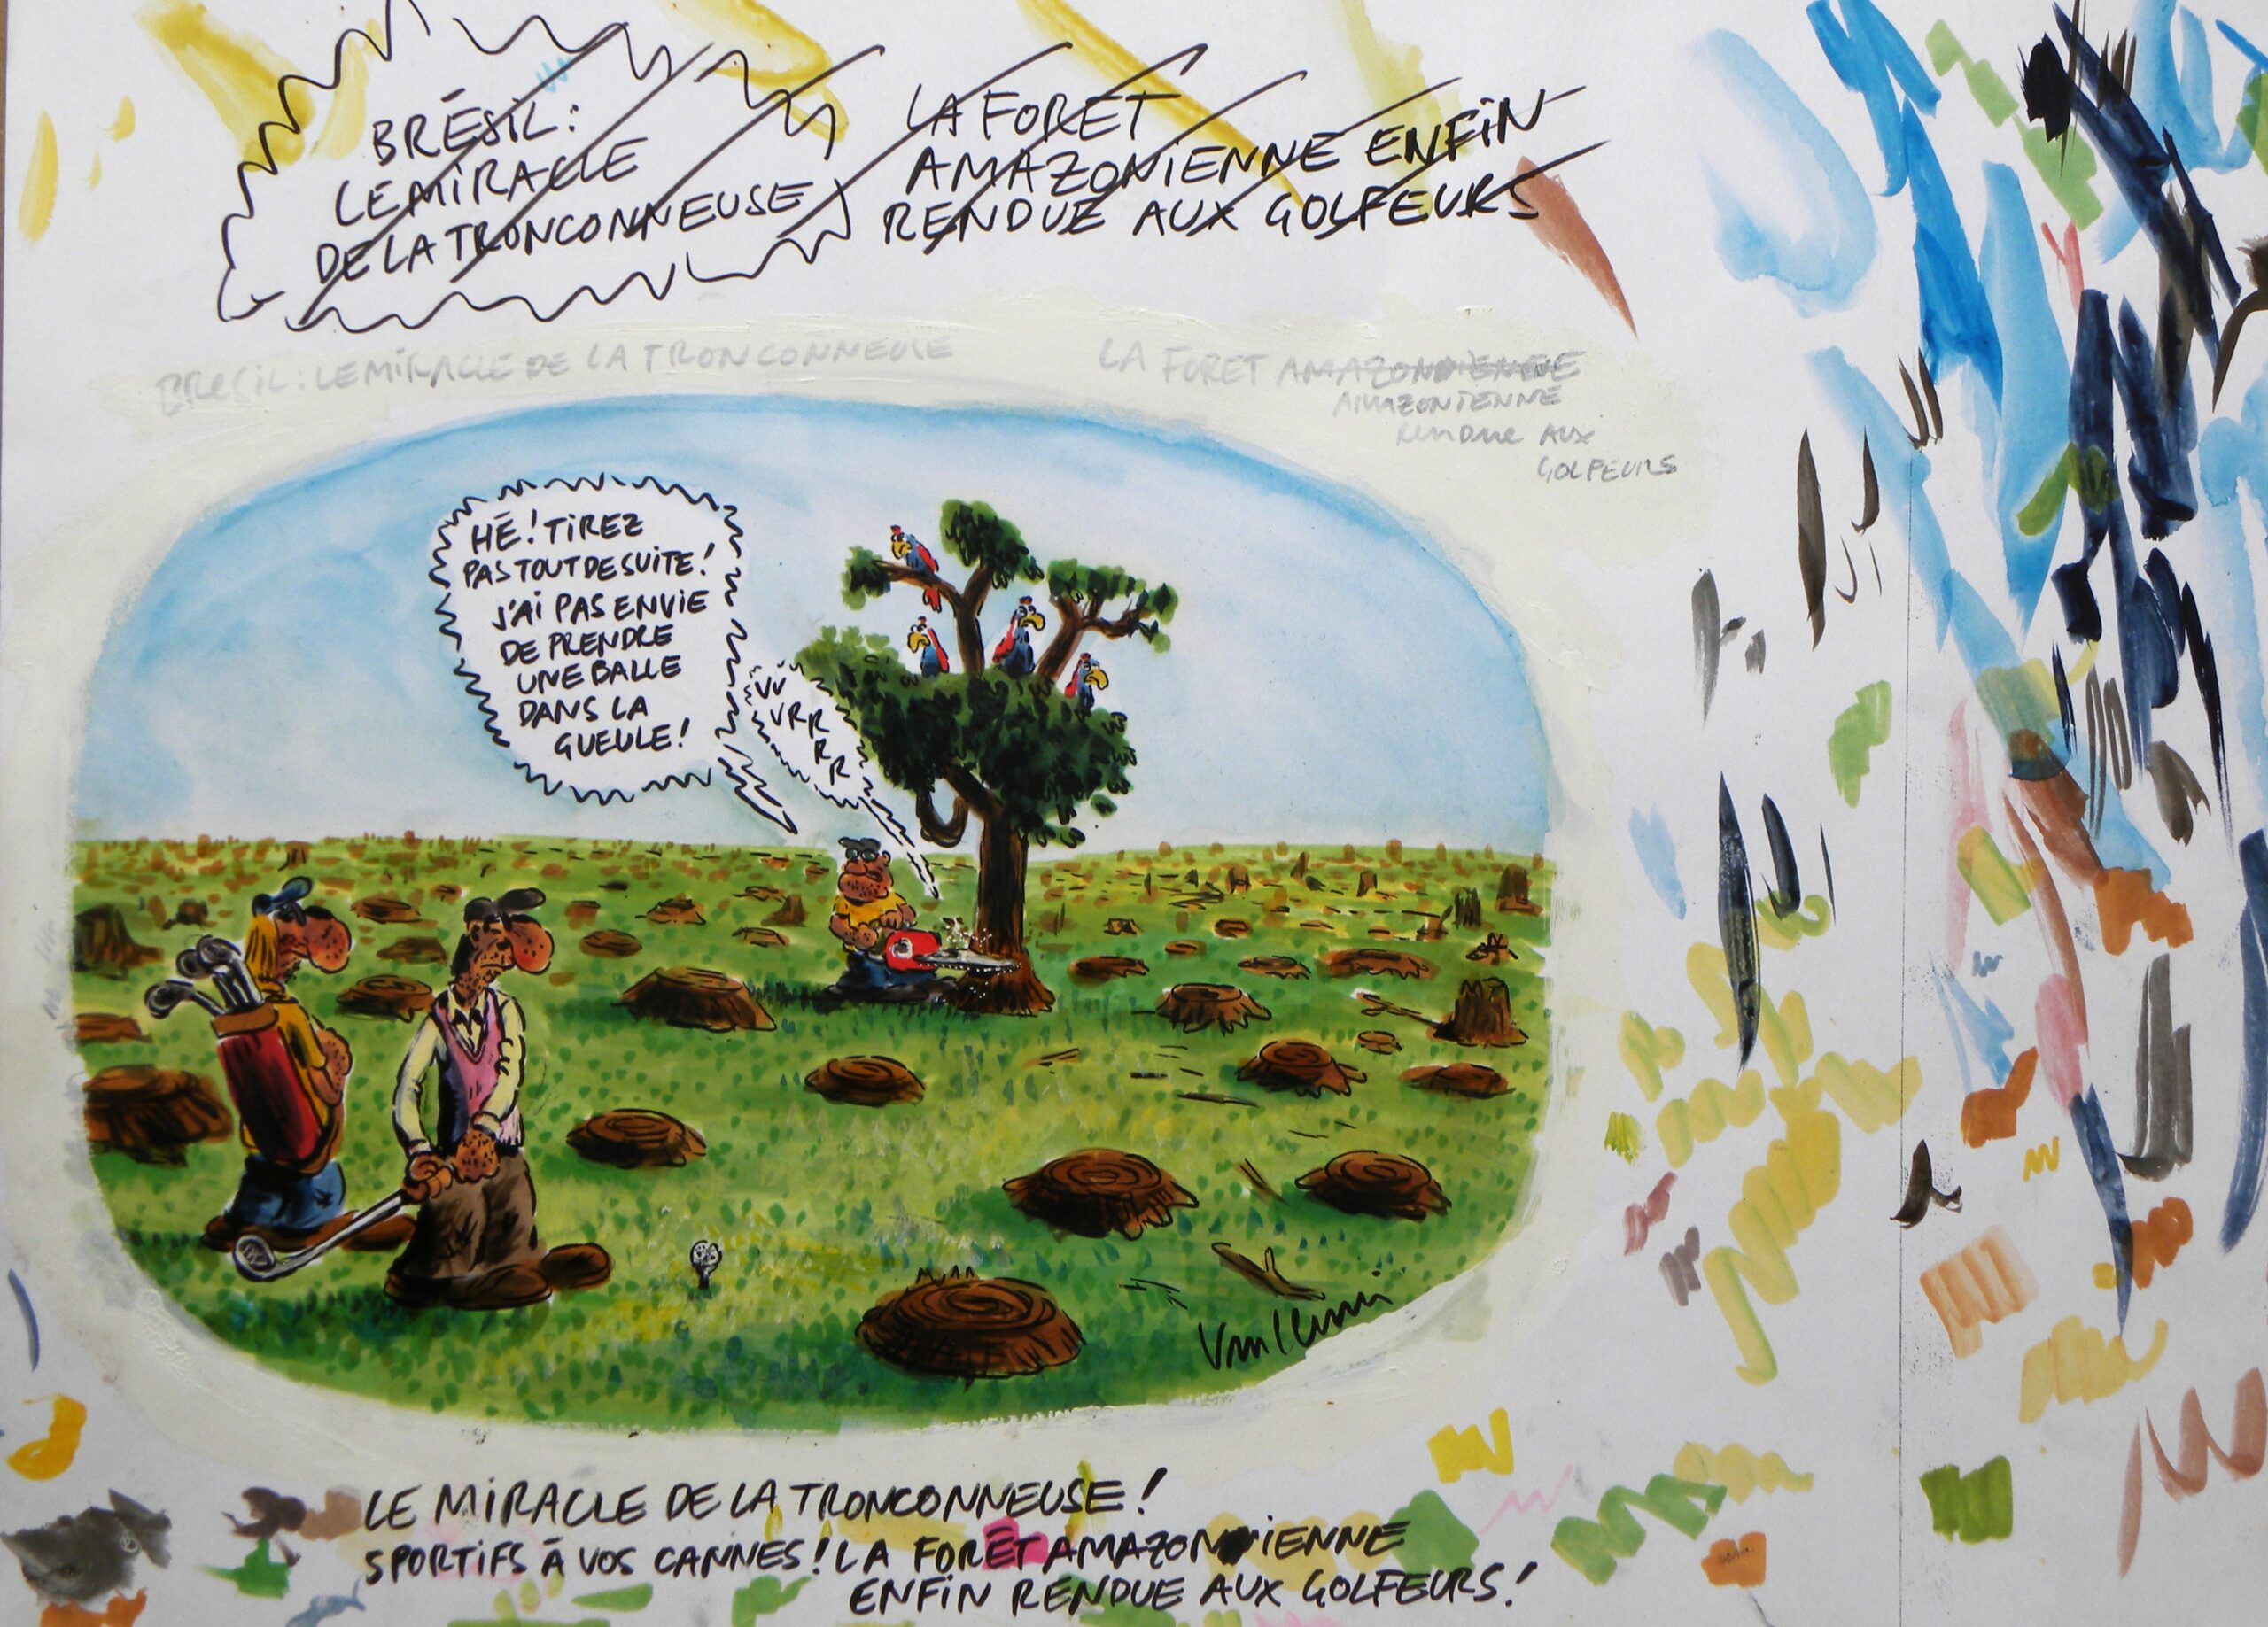 BRÉSIL:
LE MIRACLE
DE LA TRONCONNEUSE
LA FORET
AMAZONIENNE ENFIN
RENDUE AUX GOLFEURS
BRESIL: LE MIRACLE DE LA TRONCONNEUSE
LA FORET
AMAZONIENNE
RENDUE AUX
GOLFEURS
HÉ! TIREZ
PAS TOUT DE SUITE!
J'AI PAS ENVIE
DE PRENDRE
UNE BALLE
DANS LA
GUEULE!
VV
VRR
R
RR
Vuillemin
LE MIRACLE DE LA TRONCONNEUSE!
SPORTIFS À VOS CANNES! LA FORÊT AMAZONIENNE
ENFIN RENDUE AUX GOLFEURS!